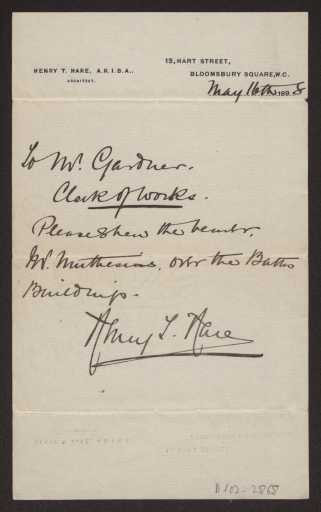 HENRY T. HARE, A.R.I.B.A.,
ARCHITECT.
13, HART STREET,
BLOOMSBURY SQUARE, W.C.
May 16th 1898
To Mr. Gardner.
Clerk of Works.
Please shew the bearer,
Mr. Muthesius, over the Baths
Buildings.
Henry T. Hare
D 102-2868